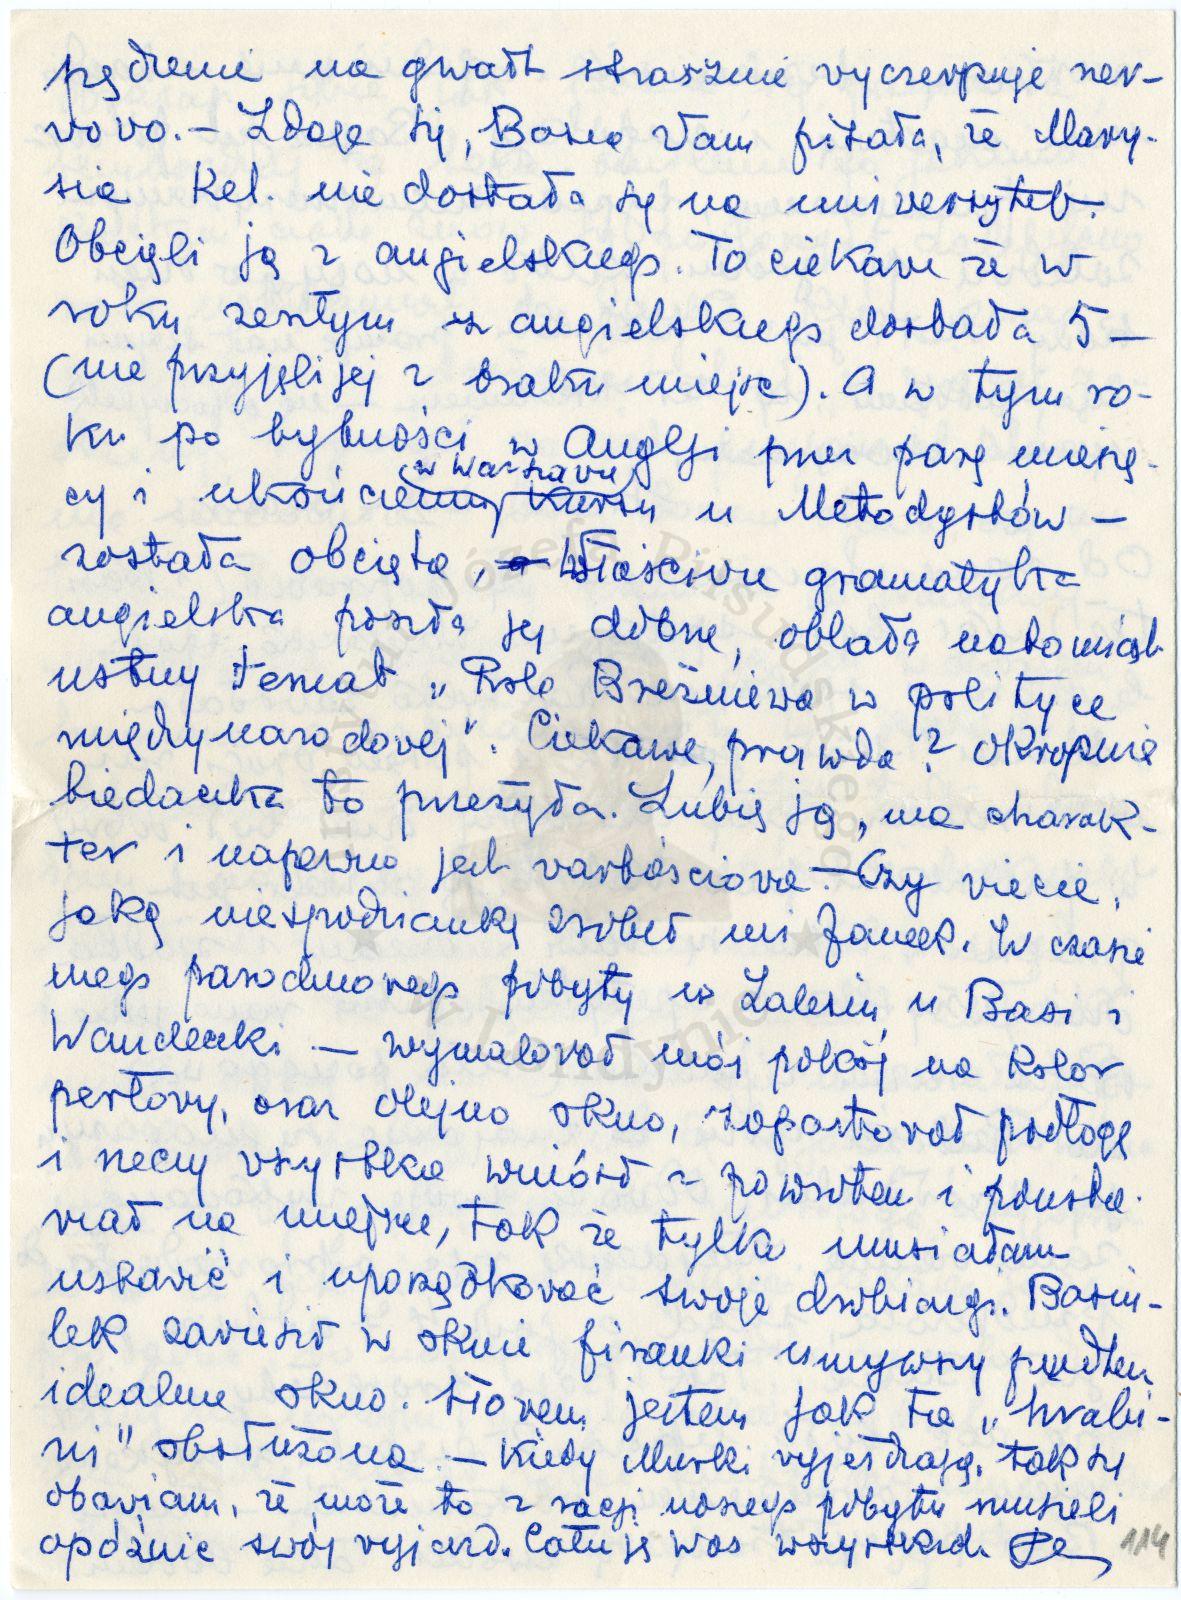 pędzenie na gwałt strasznie wyczerpuje ner-
wowo. — Zdaje się, Bożena Wam pisała, że Mary-
sia Kel. nie dostała się na uniwersytet.
Obcięli ją z angielskiego. To ciekawe że w
roku zeszłym z angielskiego dostała 5 —
(nie przyjęli jej z braku miejsc). A w tym ro-
ku po bytności w Anglji przez parę miesię-
cy i ukończeniu (w Warszawie) kursu u Metodystów —
została obcięta, Właściwie gramatyka
angielska poszła jej dobrze, oblała natomiast
ustny temat „Rola Breżniewa w polityce
międzynarodowej". Ciekawe, prawda? Okropnie
biedaczka to przeżyła. Lubię ją, ma charak-
ter i napewno jest wartościowa. — Czy wiecie,
jaką niespodziankę zrobił mi Janek. W czasie
mego parodniowego pobytu w Zalesiu u Basi i
Wandeczki — wymalował mój pokój na kolor
perłowy, oraz olejno okno, zapastował podłogę
i rzeczy wszystkie wniósł z powrotem i pousta-
wiał na miejsce, tak że tylko musiałam
ustawić i uporządkować swoje drobiazgi. Basiu-
lek zawiesił w oknie firanki umywszy przedtem
idealnie okno. Słowem jestem jak ta „hrabi-
ni" obsłużona. — Kiedy Murki wyjeżdżają, tak się
obawiam, że może to z racji naszego pobytu musieli
opóźnić swój wyjazd. Całuję Was wszystkich.
114
Instytut Józefa Piłsudskiego
w Londynie